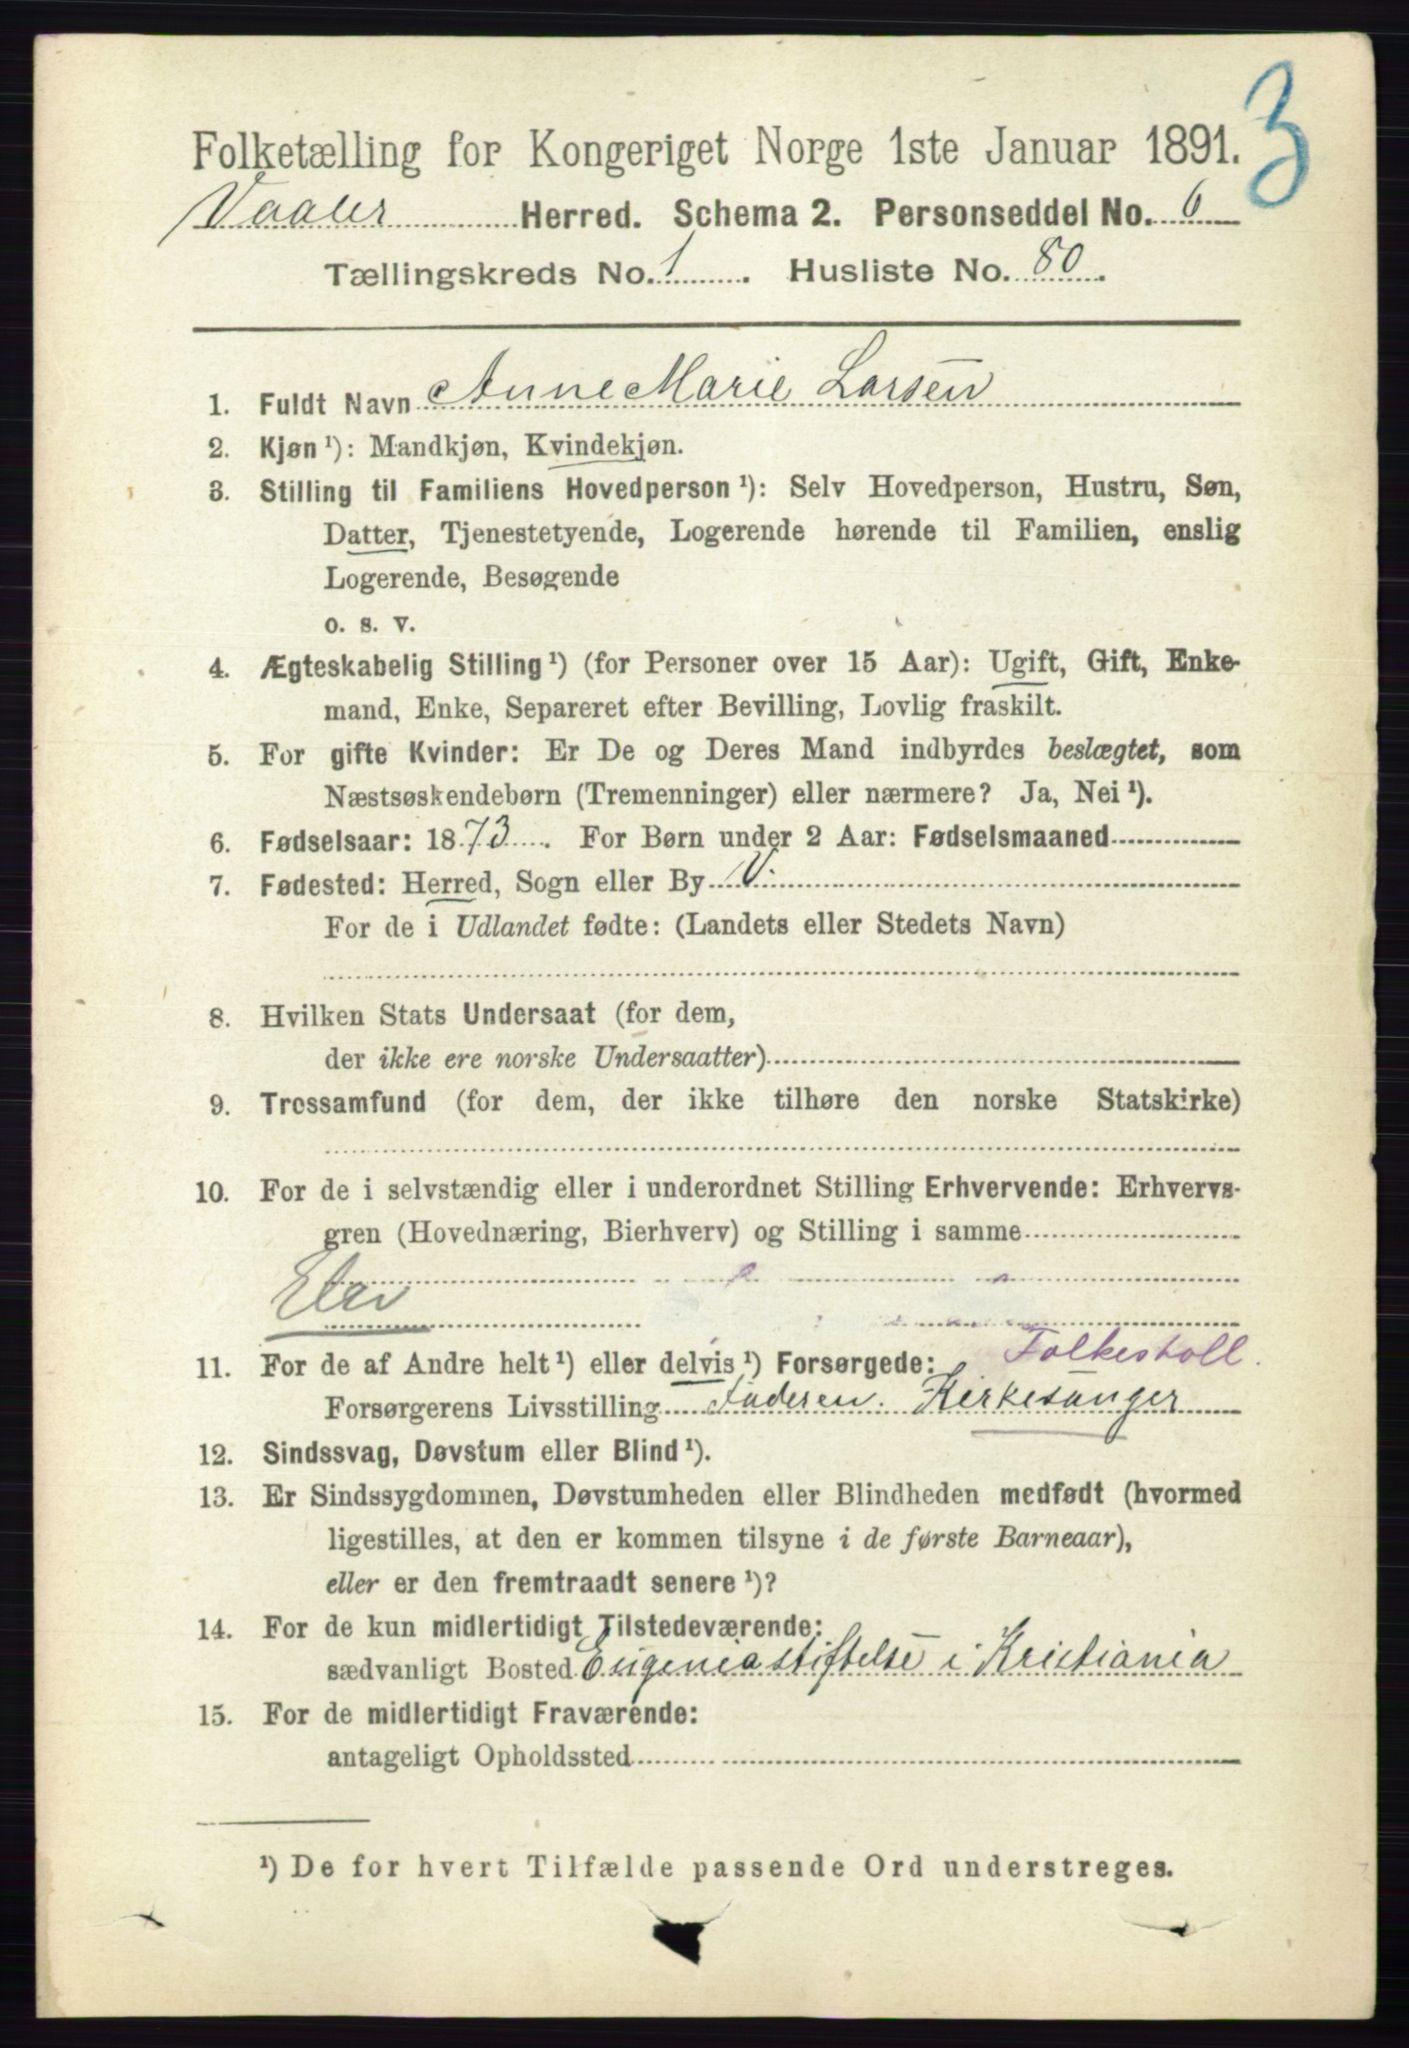 3
Folketælling for Kongeriget Norge 1ste Januar 1891.
Vaaler Herred. Schema 2. Personseddel No. 6
Tællingskreds No. 1. Husliste No. 80.
1. Fuldt Navn Anne Marie Larsen
2. Kjøn ¹): Mandkjøn, Kvindekjøn.
3. Stilling til Familiens Hovedperson ¹): Selv Hovedperson, Hustru, Søn,
Datter, Tjenestetyende, Logerende hørende til Familien, enslig
Logerende, Besøgende
o. s. v.
4. Ægteskabelig Stilling ¹) (for Personer over 15 Aar): Ugift, Gift, Enke-
mand, Enke, Separeret efter Bevilling, Lovlig fraskilt.
5. For gifte Kvinder: Er De og Deres Mand indbyrdes beslægtet, som
Næstsøskendebørn (Tremenninger) eller nærmere? Ja, Nei ¹).
6. Fødselsaar: 1873. For Børn under 2 Aar: Fødselsmaaned
7. Fødested: Herred, Sogn eller By V.
For de i Udlandet fødte: (Landets eller Stedets Navn)
8. Hvilken Stats Undersaat (for dem,
der ikke ere norske Undersaatter)
9. Trossamfund (for dem, der ikke tilhøre den norske Statskirke)
10. For de i selvstændig eller i underordnet Stilling Erhvervende: Erhvervs-
gren (Hovednæring, Bierhverv) og Stilling i samme
Elev
11. For de af Andre helt ¹) eller delvis ¹) Forsørgede: Folkeskoll.
Forsørgerens Livsstilling Faderen. Kirkesanger
12. Sindssvag, Døvstum eller Blind ¹).
13. Er Sindssygdommen, Døvstumheden eller Blindheden medfødt (hvormed
ligestilles, at den er kommen tilsyne i de første Barneaar),
eller er den fremtraadt senere ¹)?
14. For de kun midlertidigt Tilstedeværende:
sædvanligt Bosted Eugeniastiftelse i Kristiania
15. For de midlertidigt Fraværende:
antageligt Opholdssted
¹) De for hvert Tilfælde passende Ord understreges.